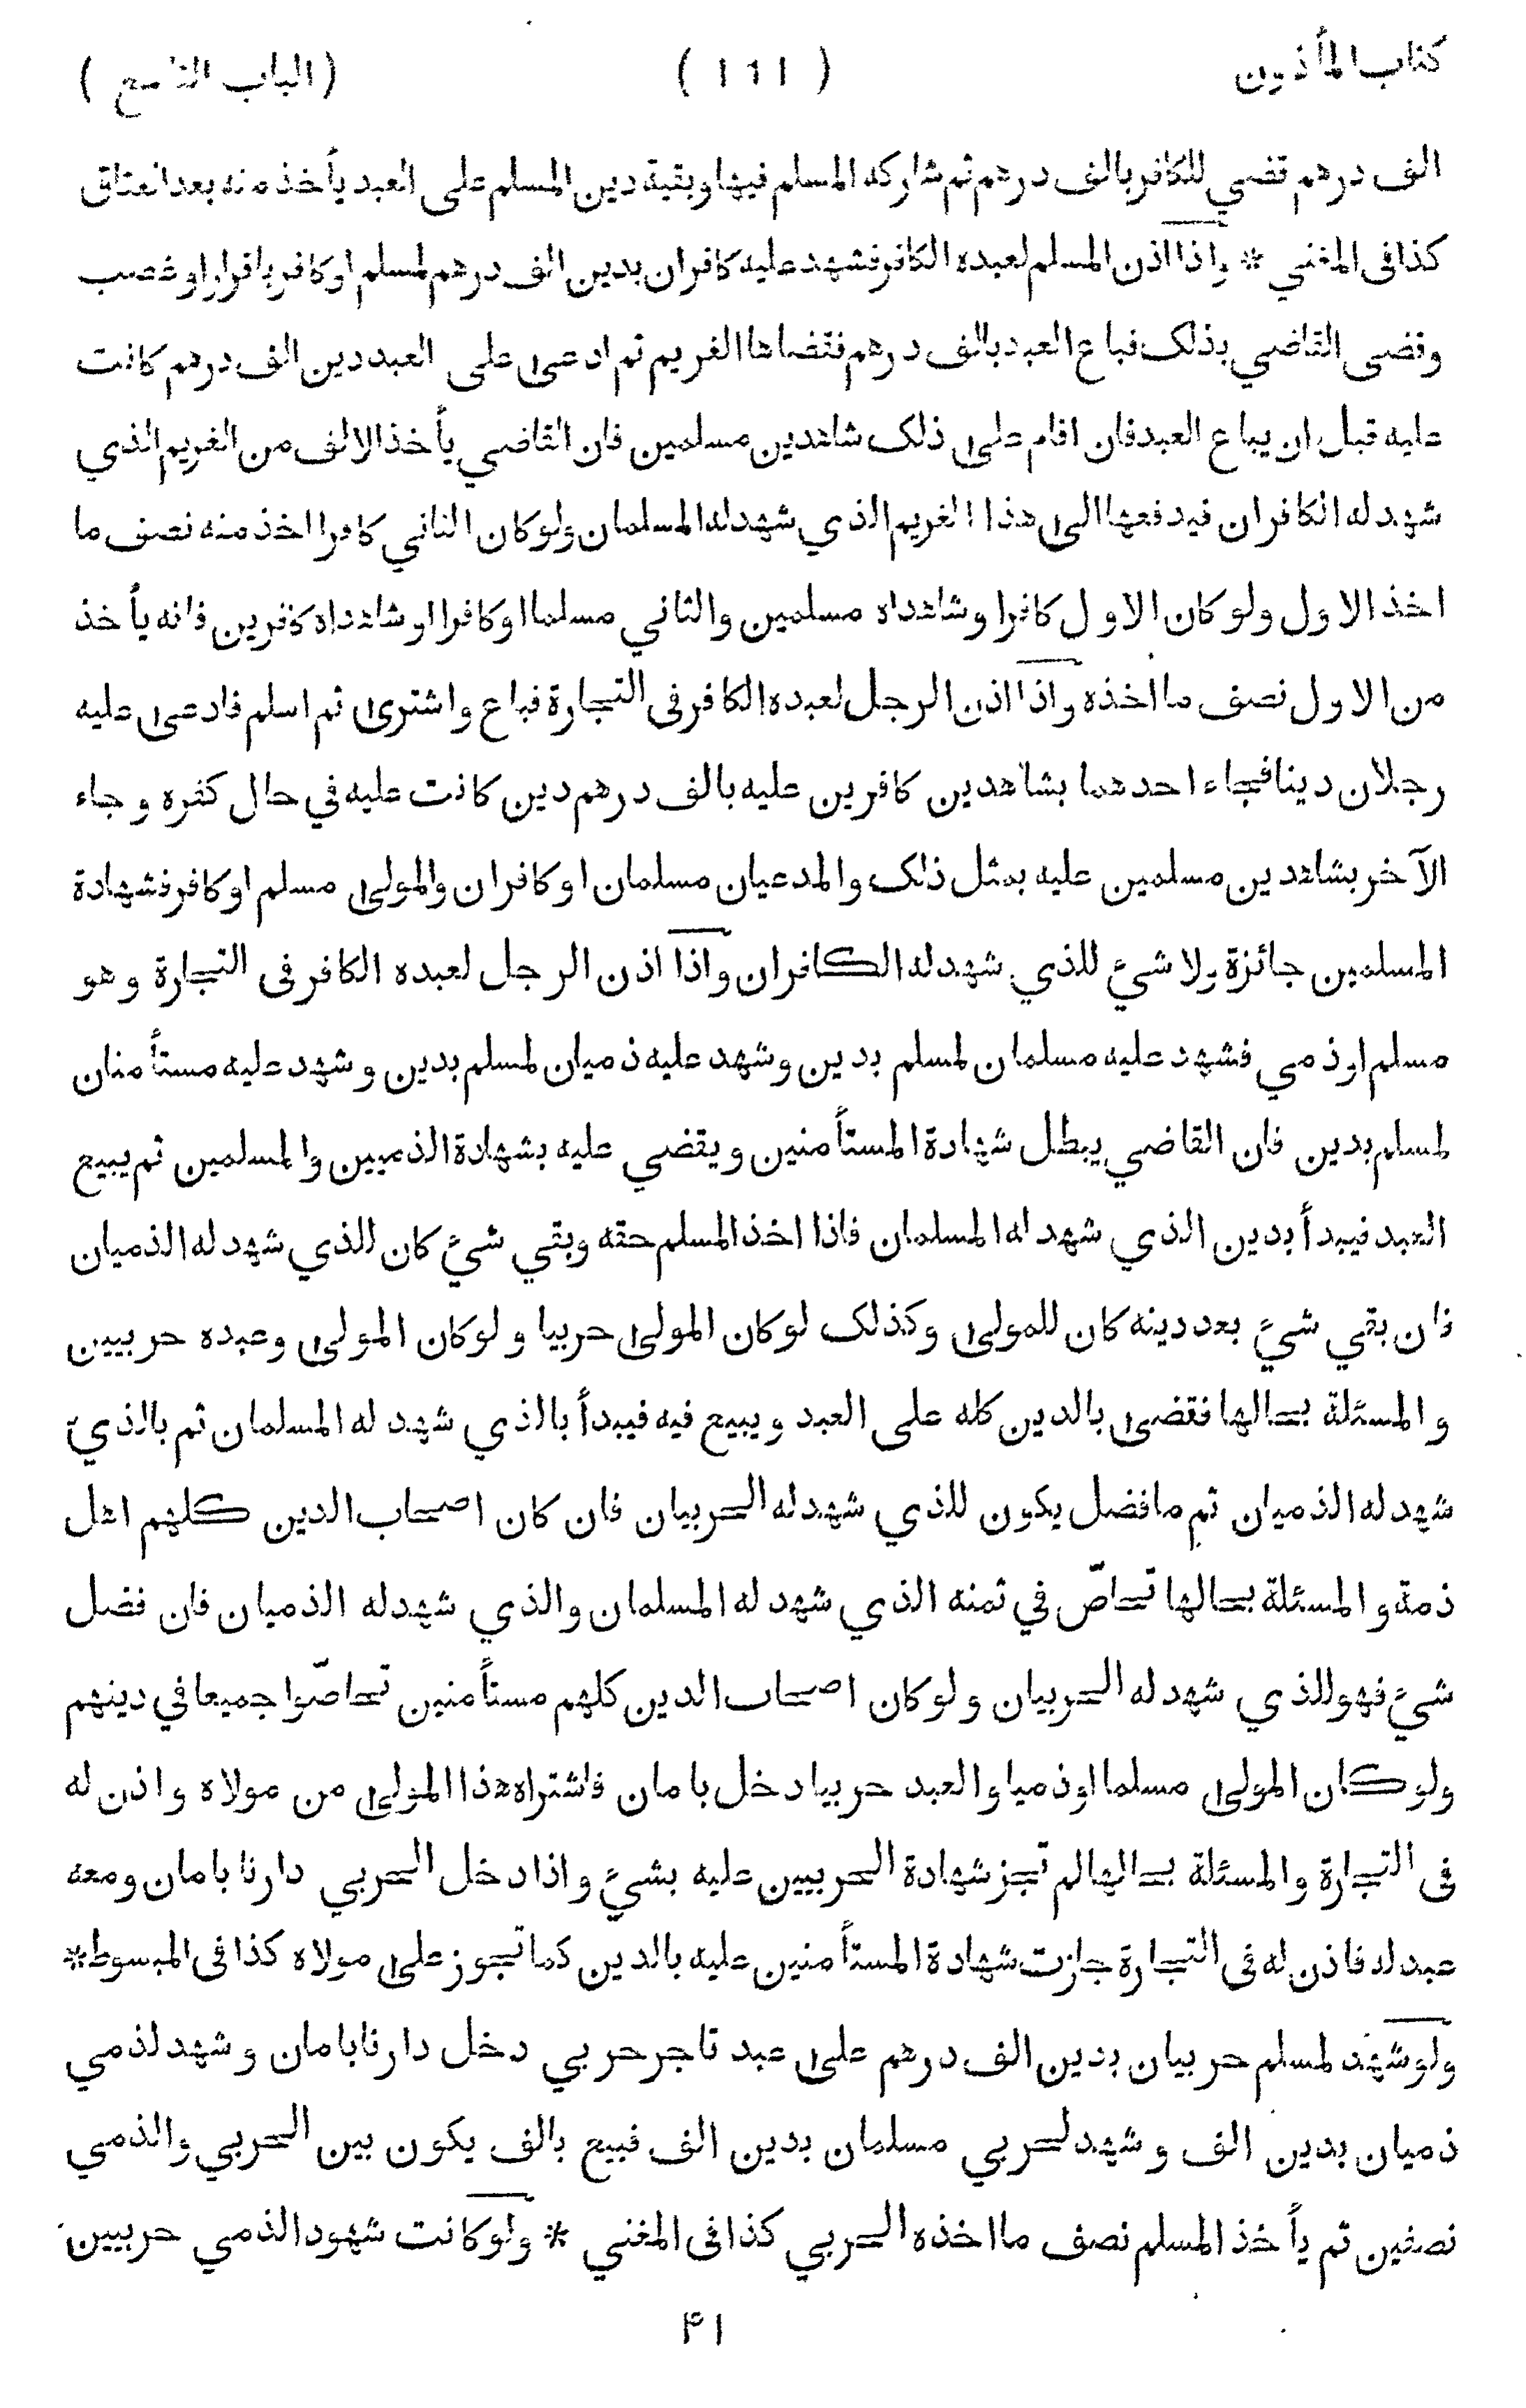 كتاب المأذون ( ١٦١ ) ( الباب التاسع )
الف درهم تقضي للكافر بالف درهم ثم شاركه المسلم فيها وبقية دين المسلم على العبد يأخذ منه بعد العتاق
كذا فى المغني * واذا اذن المسلم لعبده الكافر فشهد عليه كافران بدين الف درهم لمسلم او كافر باقرار او غصب
وقضى القاضي بذلك فباع العبد بالف درهم فقضاها الغريم ثم ادعى على العبد دين الف درهم كانت
عليه قبل ان يباع العبد فان اقام على ذلك شاهدين مسلمين فان القاضي يأخذ الالف من الغريم الذي
شهد له الكافران فيدفعها الى هذا الغريم الذي شهد له المسلمان ولو كان الثاني كافرا اخذ منه نصف ما
اخذ الاول ولو كان الاول كافرا وشاهداه مسلمين والثاني مسلما او كافرا او شاهداه كافرين فانه يأخذ
من الاول نصف ما اخذه واذا اذن الرجل لعبده الكافر فى التجارة فباع واشترى ثم اسلم فادعى عليه
رجلان دينا فجاء احدهما بشاهدين كافرين عليه بالف درهم دين كانت عليه في حال كفره وجاء
الآخر بشاهدين مسلمين عليه بمثل ذلك والمدعيان مسلمان او كافران والمولى مسلم او كافر فشهادة
المسلمين جائزة ولا شيء للذي شهد له الكافران واذا اذن الرجل لعبده الكافر فى التجارة وهو
مسلم او ذمي فشهد عليه مسلمان لمسلم بدين وشهد عليه ذميان لمسلم بدين وشهد عليه مستأمنان
لمسلم بدين فان القاضي يبطل شهادة المستأمنين ويقضي عليه بشهادة الذميين والمسلمين ثم يبيع
العبد فيبدأ بدين الذي شهد له المسلمان فاذا اخذ المسلم حقه وبقي شيء كان للذي شهد له الذميان
فان بقي شيء بعد دينه كان للمولى وكذلك لو كان المولى حربيا ولو كان المولى وعبده حربيين
والمسئلة بحالها فقضى بالدين كله على العبد ويبيع فيه فيبدأ بالذي شهد له المسلمان ثم بالذي
شهد له الذميان ثم ما فضل يكون للذي شهد له الحربيان فان كان اصحاب الدين كلهم اهل
ذمة والمسئلة بحالها تحاصّ في ثمنه الذي شهد له المسلمان والذي شهد له الذميان فان فضل
شيء فهو للذي شهد له الحربيان ولو كان اصحاب الدين كلهم مستأمنين تحاصّوا جميعا في دينهم
ولو كان المولى مسلما او ذميا والعبد حربيا دخل بامان فاشتراه هذا المولى من مولاه واذن له
فى التجارة والمسئلة بحالها لم تجز شهادة الحربيين عليه بشيء واذا دخل الحربي دارنا بامان ومعه
عبد له فاذن له فى التجارة جازت شهادة المستأمنين عليه بالدين كما تجوز على مولاه كذا فى المبسوط *
ولو شهد لمسلم حربيان بدين الف درهم على عبد تاجر حربي دخل دارنا بامان وشهد لذمي
ذميان بدين الف وشهد لحربي مسلمان بدين الف فبيع بالف يكون بين الحربي والذمي
نصفين ثم يأخذ المسلم نصف ما اخذه الحربي كذا فى المغني * ولو كانت شهود الذمي حربيين
۴۱